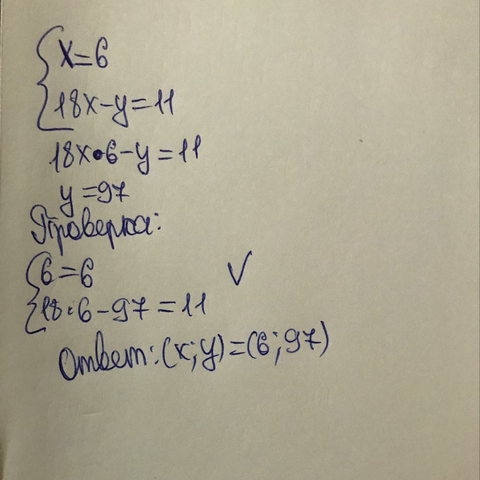 x=6
18x-y=11
18x•6-y=11
y=97
Проверка:
6=6 √
18·6-97=11
Ответ:(x;y)=(6;97)